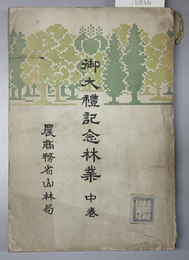 15846
御大禮記念林業 中巻
農商務省山林局